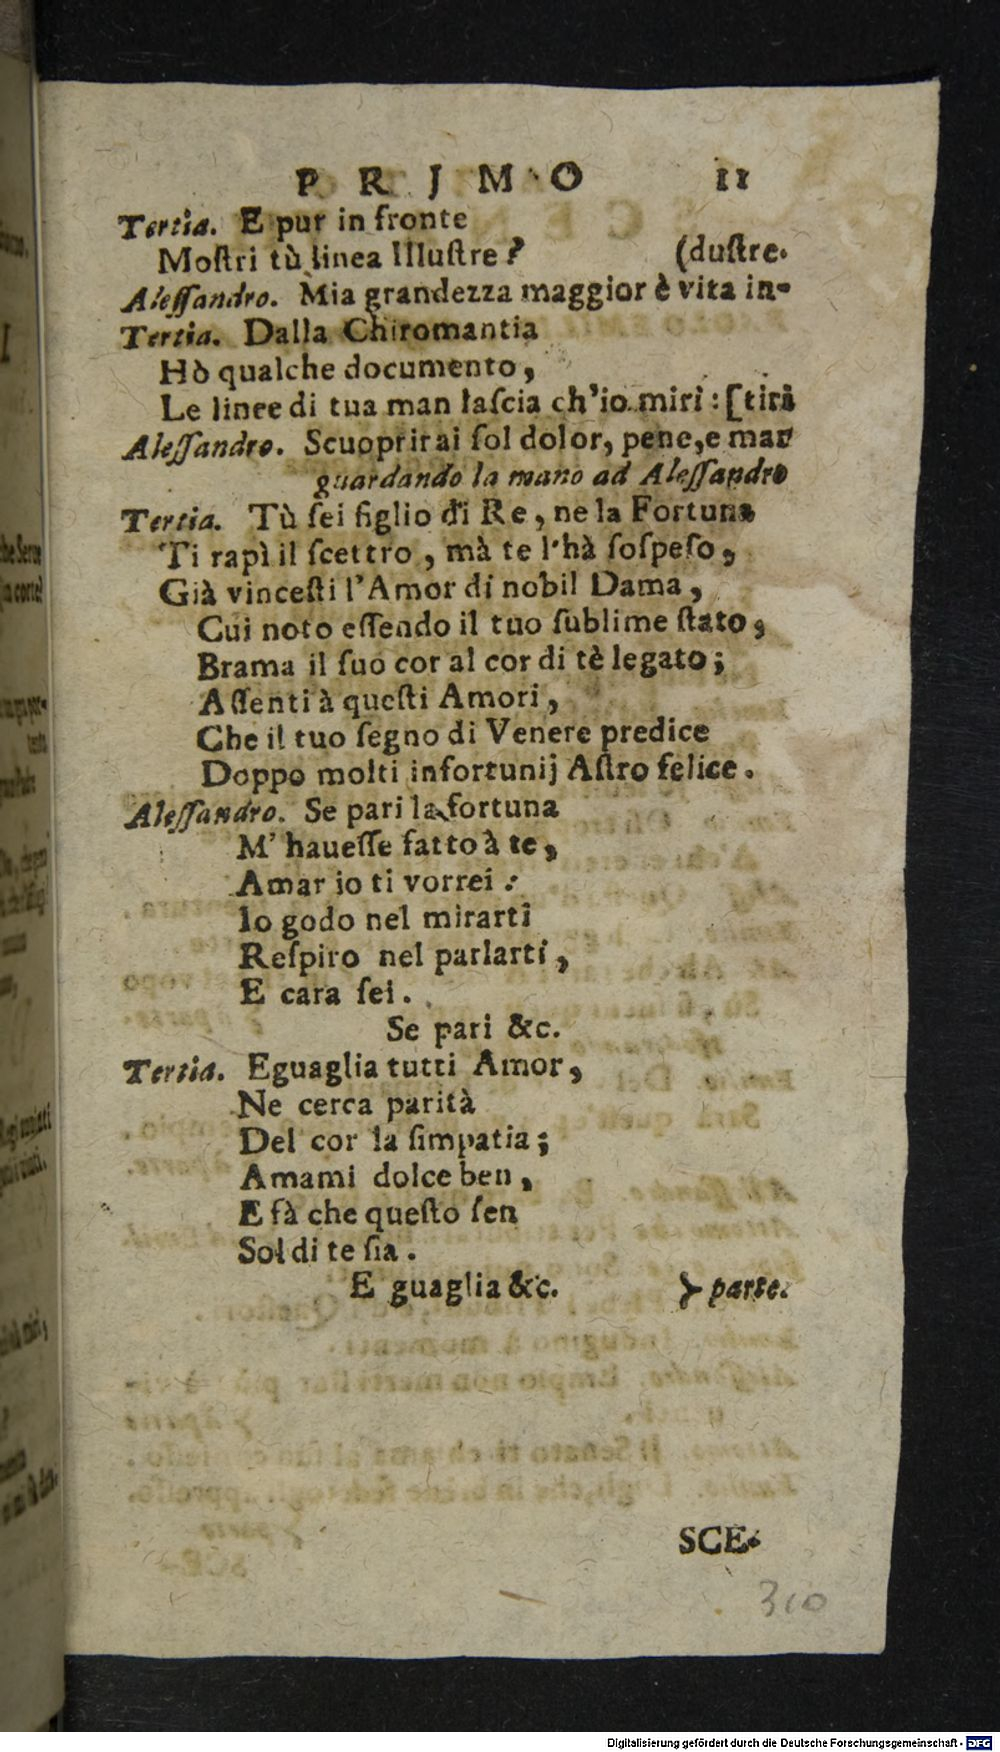 PRJMO 11
Tertia. E pur in fronte
Moſtri tù linea Illuſtre? (duſtre.
Aleſſandro. Mia grandezza maggior è vita in-
Tertia. Dalla Chiromantia
Hò qualche documento,
Le linee di tua man laſcia ch'io miri: [tiri
Aleſſandro. Scuoprirai ſol dolor, pene, e mar
guardando la mano ad Aleſſandro
Tertia. Tù ſei figlio di Re, ne la Fortuna
Ti rapì il ſcettro, mà te l'hà ſoſpeſo,
Già vinceſti l'Amor di nobil Dama,
Cui noto eſſendo il tuo ſublime ſtato,
Brama il ſuo cor al cor di tè legato;
Aſſenti à queſti Amori,
Che il tuo ſegno di Venere predice
Doppo molti infortunij Aſtro felice.
Aleſſandro. Se pari la fortuna
M' haueſſe fatto à te,
Amar io ti vorrei:
Io godo nel mirarti
Reſpiro nel parlarti,
E cara ſei.
Se pari &c.
Tertia. Eguaglia tutti Amor,
Ne cerca parità
Del cor la ſimpatia;
Amami dolce ben,
E fà che queſto ſen
Sol di te ſia.
E guaglia &c. parte.
SCE-
310
Digitalisierung gefördert durch die Deutsche Forschungsgemeinschaft - DFG